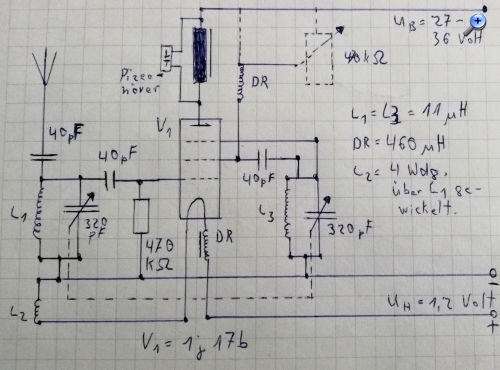 U_B = 27 -
36 Volt
Piezo-
hörer
kΩ
DR
V1
L1 = L3 = 11 µH
DR = 460 µH
L2 = 4 Wdg.
über L1 ge-
wickelt.
40pF
40pF
40pF
L1
320
pF
470
kΩ
DR
L3
320pF
L2
-
U_H = 1,2 Volt
+
V1 = 1j17b